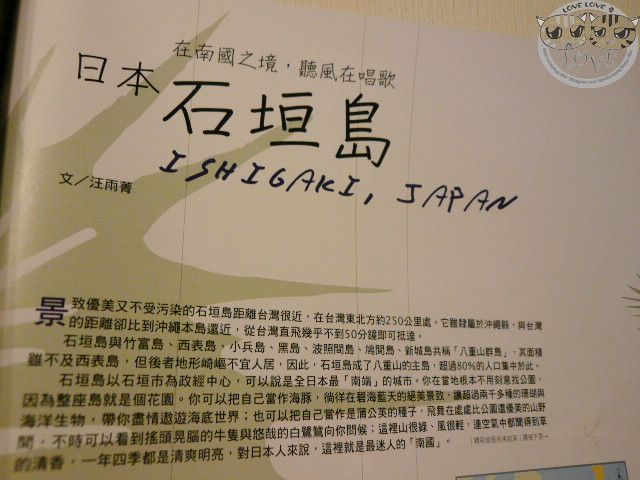 LOVE LOVE
LOVE
在南國之境，聽風在唱歌
日本
石垣島
ISHIGAKI, JAPAN
文／汪雨菁
景致優美又不受污染的石垣島距離台灣很近，在台灣東北方約250公里處。它雖隸屬於沖繩縣，與台灣
的距離卻比到沖繩本島還近，從台灣直飛幾乎不到50分鐘即可抵達。
石垣島與竹富島、西表島、小兵島、黑島、波照間島、鳩間島、新城島共稱「八重山群島」，其面積
雖不及西表島，但後者地形崎嶇不宜人居，因此，石垣島成了八重山的主島，超過80%的人口集中於此。
石垣島以石垣市為政經中心，可以說是全日本最「南端」的城市。你在當地根本不用刻意找公園，
因為整座島就是個花園。你可以把自己當作海豚，徜徉在碧海藍天的絕美景致，讓超過兩千多種的珊瑚與
海洋生物，帶你盡情遨遊海底世界；也可以把自己當作是蒲公英的種子，飛舞在處處比公園還優美的山野
間，不時可以看到搖頭晃腦的牛隻與悠哉的白鷺鷥向你問候；這裡山很綠、風很輕，連空氣中都聞得到草
的清香，一年四季都是清爽明亮，對日本人來說，這裡就是最迷人的「南國」。